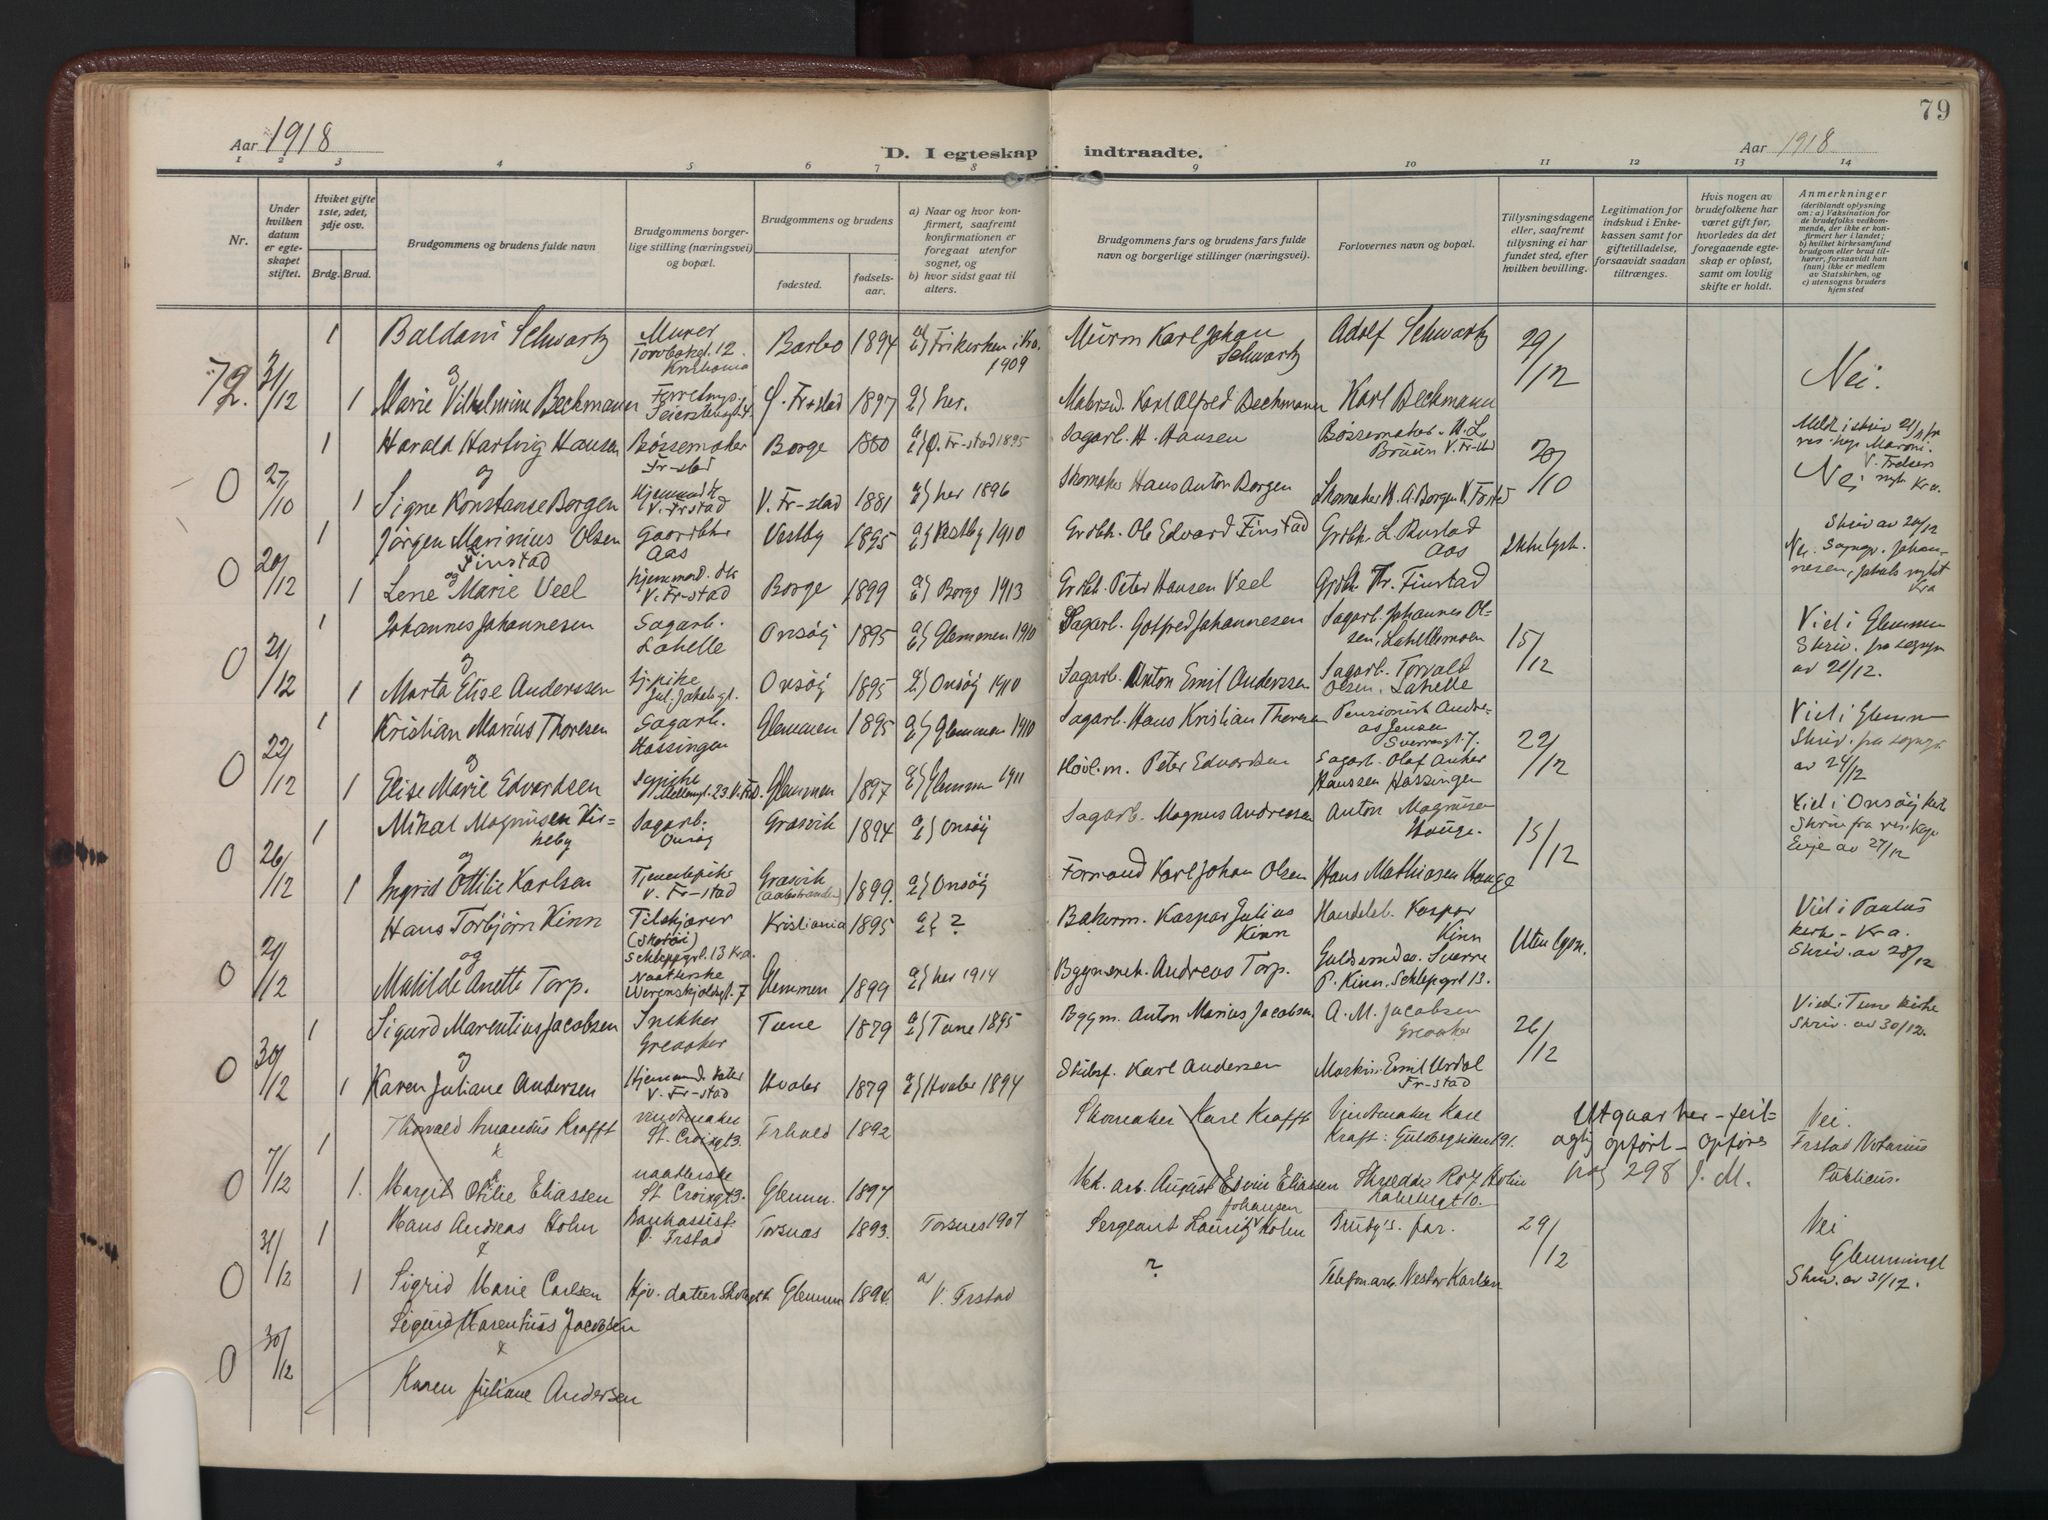 79
Aar 1918
D. I egteskap indtraadte.
Aar 1918
1 2 3 4 5 6 7 8 9 10 11 12 13 14
Nr.
Under hvilken datum er egteskapet stiftet.
Hviket gifte 1ste, 2det, 3dje osv.
Brdg. Brud.
Brudgommens og brudens fulde navn
Brudgommens borgerlige stilling (næringsvei) og bopæl.
Brudgommens og brudens
fødested.
fødselsaar.
a) Naar og hvor konfirmert, saafremt konfirmationen er foregaat utenfor sognet, og
b) hvor sidst gaat til alters.
Brudgommens fars og brudens fars fulde navn og borgerlige stillinger (næringsvei).
Forlovernes navn og bopæl.
Tillysningsdagene eller, saafremt tillysning ei har fundet sted, efter hvilken bevilling.
Legitimation for indskud i Enkekassen samt for giftetilladelse, forsaavidt saadan tiltrænges.
Hvis nogen av brudefolkene har været gift før, hvorledes da det foregaaende egteskap er opløst, samt om lovlig skifte er holdt.
Anmerkninger
(deriblandt oplysning om: a) Vaksination for de brudefolks vedkommende, der ikke er konfirmert her i landet; b) hvilket kirkesamfund brudgom eller brud tilhører, forsaavidt han (hun) ikke er medlem av Statskirken, og c) utensogns bruders hjemsted
72. 31/12
1 Baldani Schwartz Murer 12. Kristiania Barbo 1894 Frikirken i Kra. 1909 Karl Johan Schwartz Adolf Schwartz 29/12
og
1 Marie Vilhelmine Beckmann Ø. Fr-stad 1897 her. Karl Alfred Beckmann Karl Beckmann Nei.
0 27/10
1 Harald Hartvig Hansen Bøssemaker Fr-stad Borge 1880 Ø. Fr-stad 1895 Sagarb. H. Hansen Bøssemaker H. L. Bruun V. Fr-stad 20/10
og
1 Signe Konstanse Borgen V. Frstad V. Fr-stad 1881 her 1896 Skomaker Hans Anton Borgen Skomaker H. A. Borgen V. Frstad Nei
0 20/12
1 Jørgen Marinius Olsen Finstad Gaardbr. Aas Vestby 1895 Vestby 1910 Grdbr. Ole Edvard Finstad Grdbr. L. Rustad Aas Ikke lyst. Skriv av 20/12
og
1 Lene Marie Veel V. Fr-stad Borge 1899 Borge 1913 Grdbr. Peter Hansen Veel Grdbr. Kr. Finstad Kra
0 21/12
1 Johannes Johannesen Sagarb. Lahelle Onsøy 1895 Glemmen 1910 Sagarb. Gotfred Johannesen Sagarb. Johannes Olsen, Lahellemoen 15/12 Viet i Glemmen Skriv. fra sogn. av 21/12.
og
1 Marta Elise Anderssen Onsøy 1895 Onsøy 1910 Sagarb. Anton Emil Anderssen Sagarb. Torvald Olsen, Lahelle
0 22/12
1 Kristian Marius Thoresen Sagarb. Hassingen Glemmen 1895 Glemmen 1910 Sagarb. Hans Kristian Thoresen Pensionist Andreas Jensen 22/12 Viet i Glemmen Skriv. fra sogn. av 24/12
og
1 Elise Marie Edvardsen 23. V. Fr. Glemmen 1897 Glemmen 1911 Høvl.m. Peter Edvardsen Sagarb. Olaf Anker Hanssen Hassingen
0 26/12
1 Mikal Magnussen Kirkeby Sagarb. Onsøy Græsvik 1894 Onsøy Sagarb. Magnus Andreasen Anton Magnusen Hauge. 15/12 Viet i Onsøy kirke Skriv fra res. kap. av 27/12
og
1 Ingrid Otilie Karlsen Tjenestepike V. Fr-stad Græsvik 1899. Onsøy Formand Karl Johan Olsen Hans Mathiasen Hauge
0 21/12
Hans Torbjörn Kinn Tilskjærer (Skotøi) Schleppgrl. 13 Kra. Kristiania 1895 ? Bakerm. Kaspar Julius Kinn Handelsb. Kaspar Kinn Uten lysn. Viet i Paulus kirke - Kra. Skriv. av 28/12
og
Matilde Anette Torp. Naatlerske Werenskjoldsgt. 7 Glemmen 1899 her 1914 Andreas Torp. Guldsmed Sverre P. Kinn. Schlepgrl 13.
0 30/12
1 Sigurd Marentius Jacobsen Snekker Greaaker Tune 1879 Tune 1895 Byggm. Anton Marius Jacobsen A. M. Jacobsen Greaaker 26/12 Viet i Tune kirke Skriv. av 30/12.
og
1 Karen Juliane Andersen V. Fr-stad Hvaler 1879 Hvaler 1894 Karl Andersen Maskin. Emil Urdal Fr-stad
0 7/12
1 Thorvald Amandus Krafft St. Croixgt 3. Frhald 1892 Skomaker Karl Krafft Karl Kraft: Utgaar her - feilagtig opført - opføres paa 298 J. M. Nei. Frstad Notarius Publicus.
&
1. Margit Otilie Eliassen naatlerske St Croixgt 3. Glemm. 1897 Mek. arb. August Edvin Eliassen Johansen Holm
0 31/12
1 Hans Andreas Holm Bankassist. Ø. Frstad Torsnes 1893. Torsnes 1907 Sergeant Lauritz Holm Brudg's. far. 29/12 Nei
&
1 Sigrid Marie Carlsen Hjv. datter Glemm. 1894. a) V. Frstad ? Telefonarb. Nestor Karlsen Skriv. av 31/12.
0 30/12
Sigurd Marentius Jacobsen
&
Karen Juliane Andersen